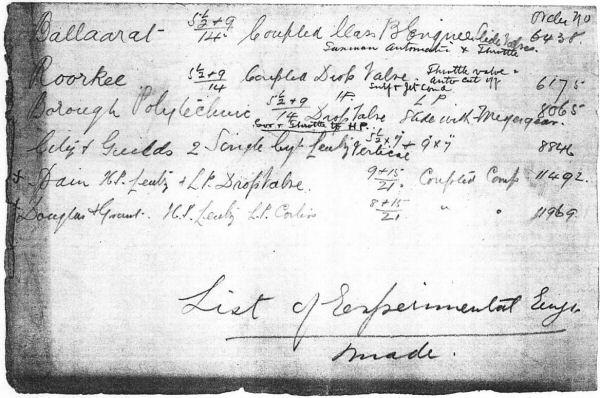 Order No
Ballaarat 5½+9/14 Coupled Class B Engines Slide Valves. 6438
Automatic & Throttle
Roorkee 5½+9/14 Coupled Drop Valve. Throttle valve & 6175
Surf & Jet Cond Auto cut off
Borough Polytechnic 5½+9/14 HP Drop Valve LP Slide with Meyer gear. 8065
Gov & Throttle to HP.
City & Guilds 2 Single Cyl. Vertical 5½ x 7" + 9" x 7" 8846
x Dain H.P. & L.P. Drop Valve. 9+15/21 Coupled Comp 11492.
x Douglas & Grant. H.P. L.P. Corliss 8+15/21 " " 11969.
List of Experimental Engs.
made.